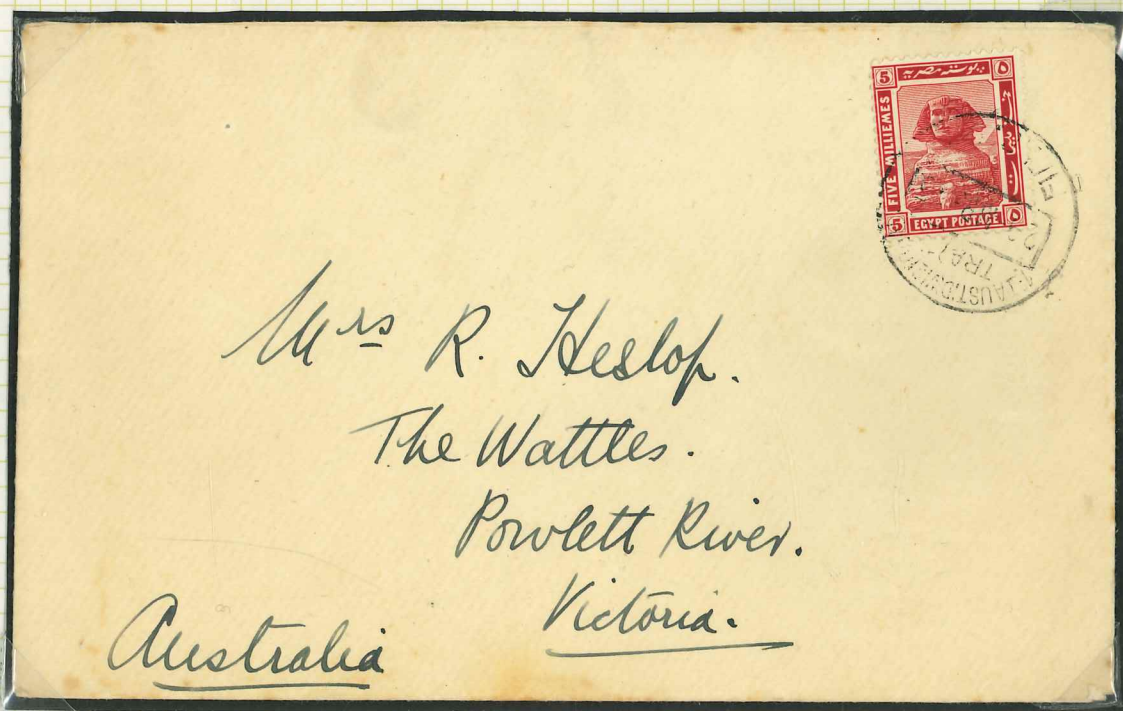 5 بوستة مصرية ٥
FIVE MILLIEMES
5 EGYPT POSTAGE ٥
Mrs R. Heslop.
The Wattles.
Powlett River.
Victoria.
Australia